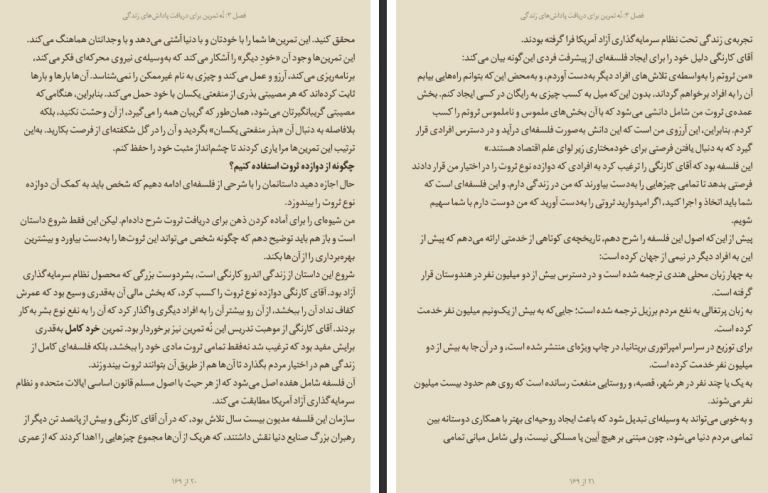 فصل ۳: نُه تمرین برای دریافت پاداش‌های زندگی
محقق کنید. این تمرین‌ها شما را با خودتان و با دنیا آشتی می‌دهد و با وجدانتان هماهنگ می‌کند.
این تمرین‌ها وجود آن «خودِ دیگر» را آشکار می‌کند که به‌وسیله‌ی نیروی محرکه‌ای فکر می‌کند،
برنامه‌ریزی می‌کند، آرزو و عمل می‌کند و چیزی به نام غیرممکن را نمی‌شناسد. آن‌ها بارها و بارها
ثابت کرده‌اند که هر مصیبتی بذری از منفعتی یکسان با خود حمل می‌کند. بنابراین، هنگامی‌که
مصیبتی گریبانگیرتان می‌شود، همان‌طور که گریبان همه را می‌گیرد، از آن وحشت نکنید، بلکه
بلافاصله به دنبال آن «بذر منفعتی یکسان» بگردید و آن را در گل شکفته‌ای از فرصت بکارید. به‌این
ترتیب این تمرین‌ها مرا یاری کردند تا چشم‌انداز مثبت خود را حفظ کنم.
چگونه از دوازده ثروت استفاده کنیم؟
حال اجازه دهید داستانمان را با شرحی از فلسفه‌ای ادامه دهیم که شخص باید به کمک آن دوازده
نوع ثروت را بیندوزد.
من شیوه‌ای را برای آماده کردن ذهن برای دریافت ثروت شرح داده‌ام. لیکن این فقط شروع داستان
است و باز هم باید توضیح دهم که چگونه شخص می‌تواند این ثروت‌ها را به‌دست بیاورد و بیشترین
بهره‌برداری را از آن‌ها بکند.
شروع این داستان از زندگی اندرو کارنگی است، بشردوست بزرگی که محصول نظام سرمایه‌گذاری
آزاد بود. آقای کارنگی دوازده نوع ثروت را کسب کرد، که بخش مالی آن به‌قدری وسیع بود که عمرش
کفاف نداد آن را ببخشد، از آن رو بیشتر آن را به افراد دیگری واگذار کرد که آن را به نفع نوع بشر به کار
بردند. آقای کارنگی از موهبت تدریس این نُه تمرین نیز برخوردار بود. تمرین خرد کامل به‌قدری
برایش مفید بود که ترغیب شد نه‌فقط تمامی ثروت مادی خود را ببخشد، بلکه فلسفه‌ای کامل از
زندگی هم در اختیار مردم بگذارد تا آن‌ها هم از طریق آن بتوانند ثروت بیندوزند.
آن فلسفه شامل هفده اصل می‌شود که از هر حیث با اصول مسلم قانون اساسی ایالات متحده و نظام
سرمایه‌گذاری آزاد آمریکا مطابقت می‌کند.
سازمان این فلسفه مدیون بیست سال تلاش بود، که در آن آقای کارنگی و بیش از پانصد تن دیگر از
رهبران بزرگ صنایع دنیا نقش داشتند، که هریک از آن‌ها مجموع چیزهایی را اهدا کردند که از عمری
۲۰ از ۱۶۹
فصل ۳: نُه تمرین برای دریافت پاداش‌های زندگی
تجربه‌ی زندگی تحت نظام سرمایه‌گذاری آزاد آمریکا فرا گرفته بودند.
آقای کارنگی دلیل خود را برای ایجاد فلسفه‌ای از پیشرفت فردی این‌گونه بیان می‌کند:
«من ثروتم را به‌واسطه‌ی تلاش‌های افراد دیگر به‌دست آوردم، و به‌محض این‌که بتوانم راه‌هایی بیابم
آن را به افراد برخواهم گرداند، بدون این‌که میل به کسب چیزی به رایگان در کسی ایجاد کنم. بخش
عمده‌ی ثروت من شامل دانشی می‌شود که با آن بخش‌های ملموس و ناملموس ثروتم را کسب
کردم. بنابراین، این آرزوی من است که این دانش به‌صورت فلسفه‌ای درآید و در دسترس افرادی قرار
گیرد که به دنبال یافتن فرصتی برای خودمختاری زیر لوای علم اقتصاد هستند.»
این فلسفه بود که آقای کارنگی را ترغیب کرد به افرادی که دوازده نوع ثروت را در اختیار من قرار دادند
فرصتی بدهد تا تمامی چیزهایی را به‌دست بیاورند که من در زندگی دارم، و این فلسفه‌ای است که
شما باید اتخاذ و اجرا کنید، اگر امیدوارید ثروتی را به‌دست آورید که من دوست دارم با شما سهیم
شویم.
پیش از این‌که اصول این فلسفه را شرح دهم، تاریخچه‌ی کوتاهی از خدمتی ارائه می‌دهم که پیش از
این به افراد دیگر در نیمی از جهان کرده است:
به چهار زبان محلی هندی ترجمه شده است و در دسترس بیش از دو میلیون نفر در هندوستان قرار
گرفته است.
به زبان پرتغالی به نفع مردم برزیل ترجمه شده است؛ جایی‌که به بیش از یک‌ونیم میلیون نفر خدمت
کرده است.
برای توزیع در سراسر امپراتوری بریتانیا، در چاپ ویژه‌ای منتشر شده است، و در آن‌جا به بیش از دو
میلیون نفر خدمت کرده است.
به یک یا چند نفر در هر شهر، قصبه، و روستایی منفعت رسانده است که روی هم حدود بیست میلیون
نفر می‌شوند.
و به‌خوبی می‌تواند به وسیله‌ای تبدیل شود که باعث ایجاد روحیه‌ای بهتر با همکاری دوستانه بین
تمامی مردم دنیا می‌شود، چون مبتنی بر هیچ آیین یا مسلکی نیست، ولی شامل مبانی تمامی
۲۱ از ۱۶۹